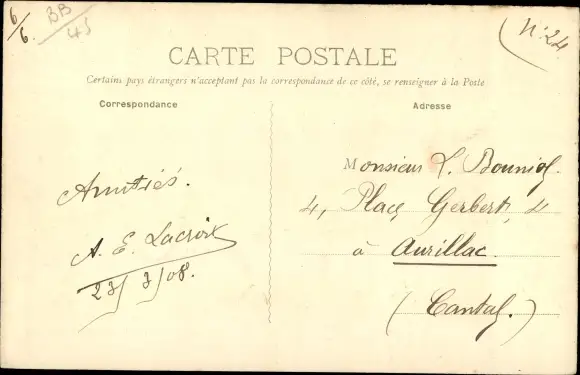 6/6.
BB
45
N: 24
CARTE POSTALE
Certains pays étrangers n'acceptant pas la correspondance de ce côté, se renseigner à la Poste
Correspondance
Adresse
Amitiés.
A. E. Lacroix
23/3/08.
Monsieur L. Bouniol
4, Place Gerbert, 4
à Aurillac.
(Cantal.)